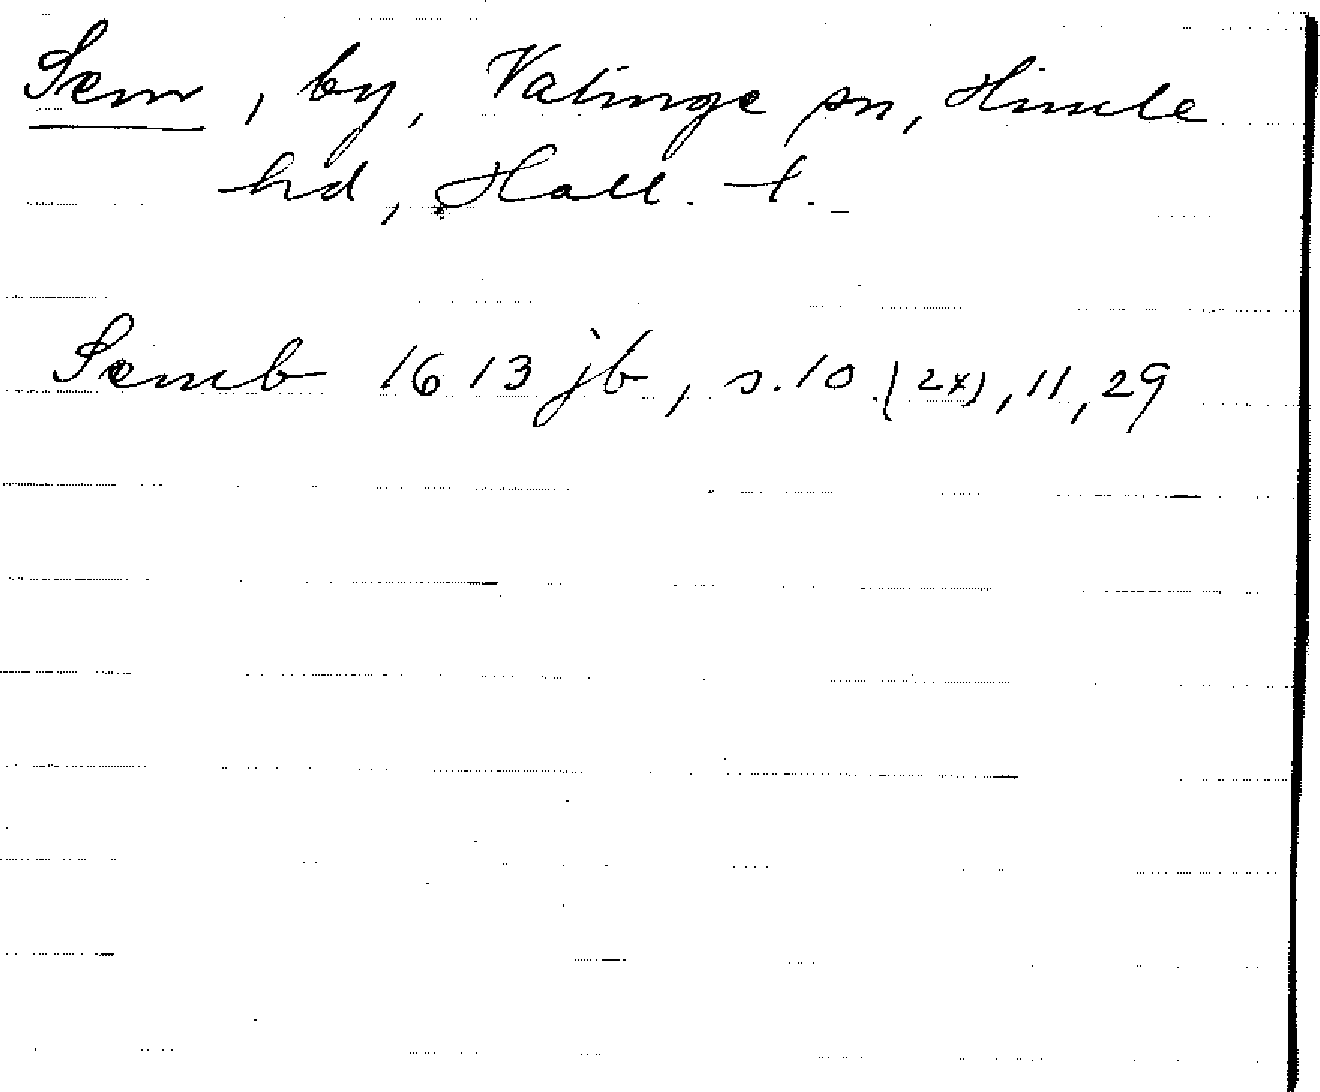 Sem, by, Valinge sn, Himle
hd, Hall. l.
Semb 1613 jb, s. 10 (2x), 11, 29